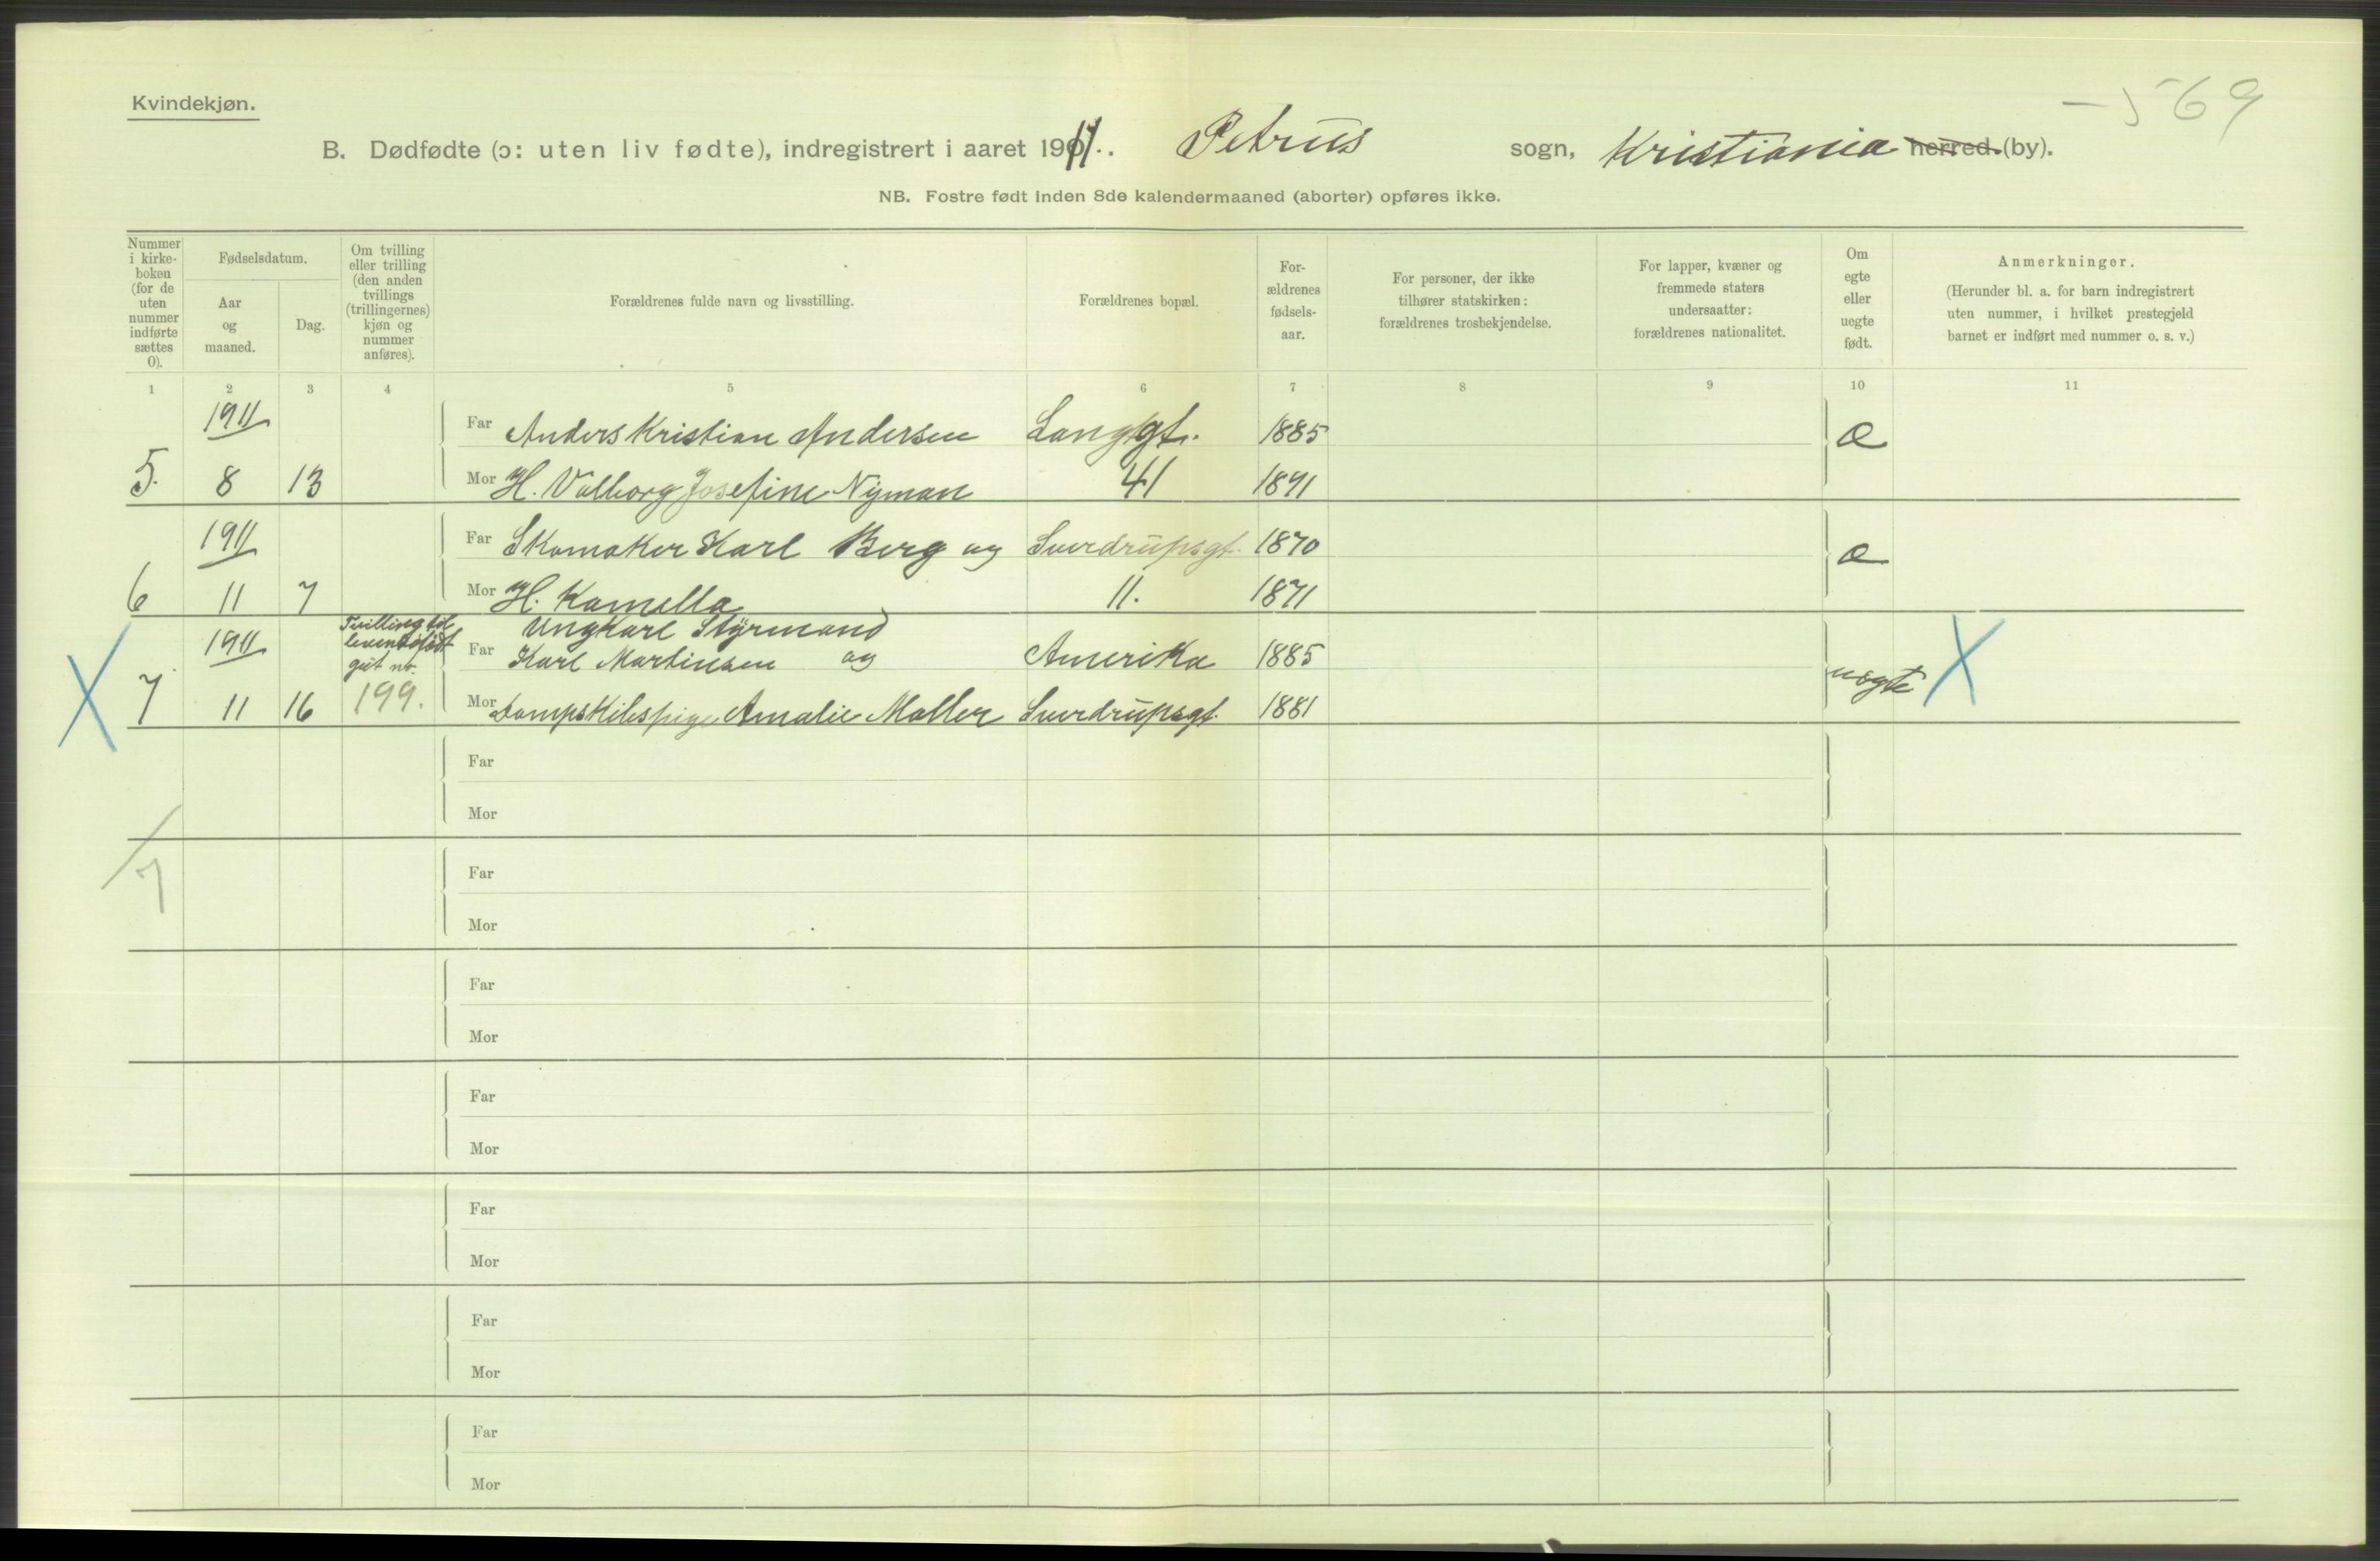 569
Kvindekjøn.
B. Dødfødte (ɔ: uten liv fødte), indregistrert i aaret 1911. Petrus sogn, Kristiania herred. (by).
NB. Fostre født inden 8de kalendermaaned (aborter) opføres ikke.
Nummer i kirke-boken (for de uten nummer indførte sættes 0).
Fødselsdatum.
Aar og maaned.
Dag.
Om tvilling eller trilling (den anden tvillings (trillingernes) kjøn og nummer anføres).
Forældrenes fulde navn og livsstilling.
Forældrenes bopæl.
For-ældrenes fødsels-aar.
For personer, der ikke tilhører statskirken: forældrenes trosbekjendelse.
For lapper, kvæner og fremmede staters undersaatter: forældrenes nationalitet.
Om egte eller uegte født.
Anmerkninger.
(Herunder bl. a. for barn indregistrert uten nummer, i hvilket prestegjeld barnet er indført med nummer o. s. v.)
1 2 3 4 5 6 7 8 9 10 11
1911 Far Anders Kristian Andersen Langgt. 1885 e
5. 8 13 Mor H. Valborg Josefine Nyman 41 1891
1911 Far Skomaker Karl Berg og Sverdrupsgt. 1870 e
6 11 7 Mor H. Kamilla 11. 1871
Tvilling til levendefødt gut nr. 199.
Ungkarl Styrmand
1911 Far Karl Martinsen og Amerika 1885 uegte X
X 7 11 16 Mor Dampskibspige Amalie Møller Sverdrupsgt. 1881
Far
Mor
7
Far
Mor
Far
Mor
Far
Mor
Far
Mor
Far
Mor
Far
Mor